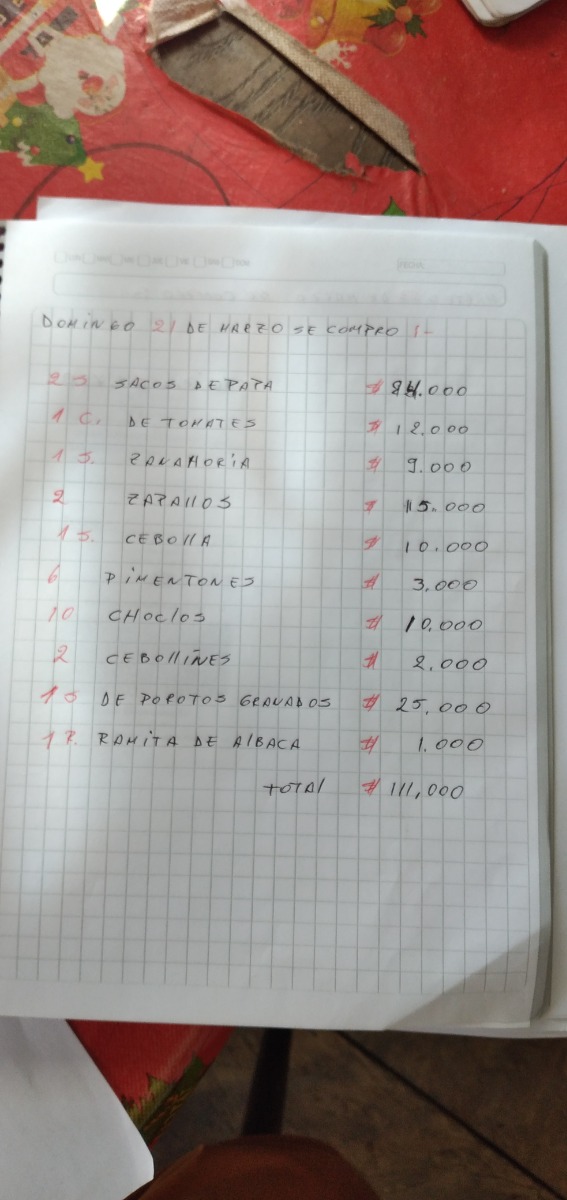 FECHA
DOMINGO 21 DE MARZO SE COMPRO :-
2 S. SACOS DE PAPA $ 24.000
1 C. DE TOMATES $ 12.000
1 S. ZANAHORIA $ 9.000
2 ZAPALLOS $ 15.000
1 S. CEBOLLA $ 10.000
6 PIMENTONES $ 3.000
10 CHOCLOS $ 10.000
2 CEBOLLIÑES $ 2.000
1 S DE POROTOS GRANADOS $ 25.000
1 R. RAMITA DE ALBACA $ 1.000
TOTAL $ 111,000